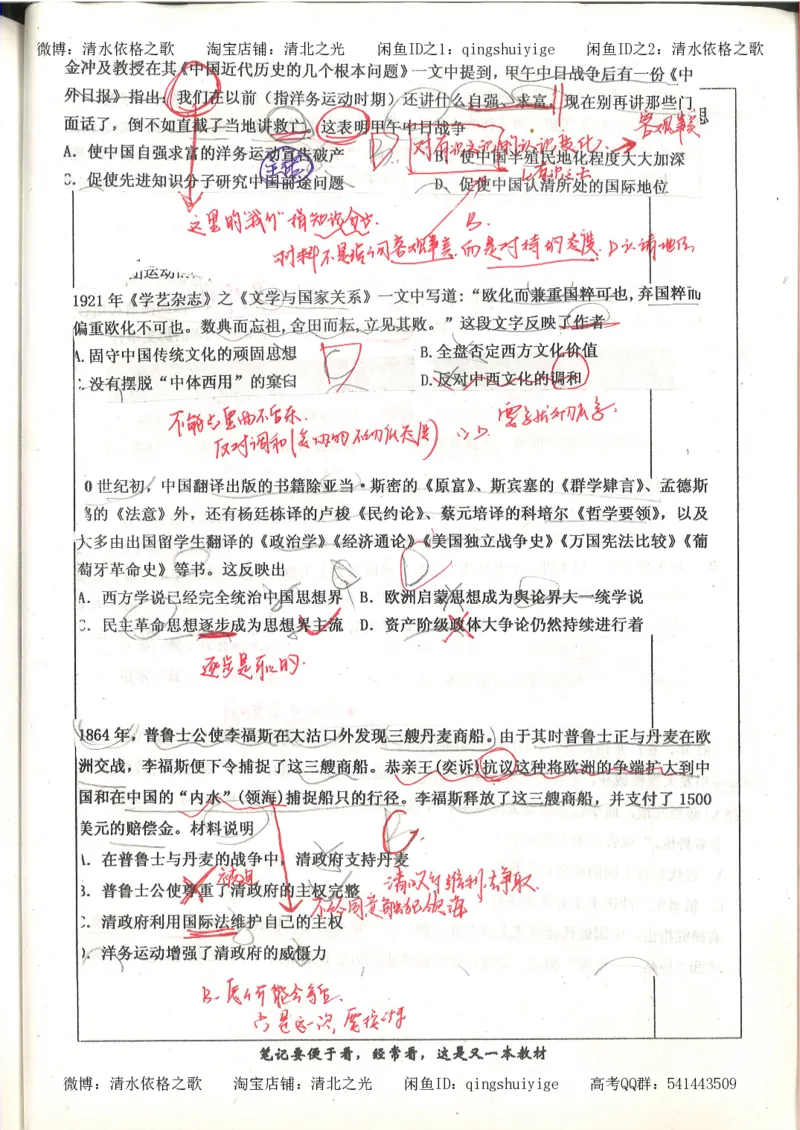 微博：清水依格之歌 淘宝店铺：清北之光 闲鱼ID之1：qingshuiyige 闲鱼ID之2：清水依格之歌
金冲及教授在其《中国近代历史的几个根本问题》一文中提到，甲午中日战争后有一份《中
外日报》指出：我们在以前（指洋务运动时期）还讲什么自强、求富，现在别再讲那些门
面话了，倒不如直截了当地讲救亡。这表明甲午中日战争
A．使中国自强求富的洋务运动宣告破产 B．使中国半殖民地化程度大大加深
C．促使先进知识分子研究中国前途问题 D．促使中国认清所处的国际地位
这里的"我们"指知识分子.
B.
材料不是指向客观事实,而是对待的态度.
1921 年《学艺杂志》之《文学与国家关系》一文中写道："欧化而兼重国粹可也，弃国粹而
偏重欧化不可也。数典而忘祖，舍田而耘，立见其败。"这段文字反映了作者
A.固守中国传统文化的顽固思想 B.全盘否定西方文化价值
C.没有摆脱"中体西用"的窠臼 D.反对中西文化的调和
0 世纪初，中国翻译出版的书籍除亚当·斯密的《原富》、斯宾塞的《群学肄言》、孟德斯
鸠的《法意》外，还有杨廷栋译的卢梭《民约论》、蔡元培译的科培尔《哲学要领》，以及
大多由出国留学生翻译的《政治学》《经济通论》《美国独立战争史》《万国宪法比较》《葡
萄牙革命史》等书。这反映出
A．西方学说已经完全统治中国思想界 B．欧洲启蒙思想成为舆论界大一统学说
C．民主革命思想逐步成为思想界主流 D．资产阶级政体大争论仍然持续进行着
逐步是可以的.
1864 年，普鲁士公使李福斯在大沽口外发现三艘丹麦商船。由于其时普鲁士正与丹麦在欧
洲交战，李福斯便下令捕捉了这三艘商船。恭亲王(奕䜣)抗议这种将欧洲的争端扩大到中
国和在中国的"内水"(领海)捕捉船只的行径。李福斯释放了这三艘商船，并支付了 1500
美元的赔偿金。材料说明
A．在普鲁士与丹麦的战争中，清政府支持丹麦
B．普鲁士公使尊重了清政府的主权完整
C．清政府利用国际法维护自己的主权
D．洋务运动增强了清政府的威慑力
笔记要便于看，经常看，这是又一本教材
微博：清水依格之歌 淘宝店铺：清北之光 闲鱼ID：qingshuiyige 高考QQ群：541443509